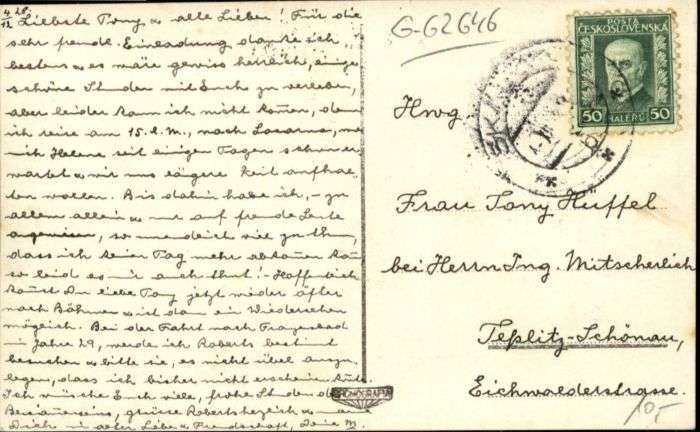 4/12 28.
Liebste Tony, & alle Lieben! Für die
sehr freudl. Einladung danke ich
bestens & es wäre gewiss herrlich, einige
schöne Stunden mit Euch zu verleben,
aber leider kann ich nicht kommen, denn
ich reise am 15. l. M., nach Locarno, wo
mich Helene seit einigen Tagen schon er
wartet & wir uns längere Zeit aufhal
ten wollen. Bis dahin habe ich, – zu
allem allein & nur auf fremde Leute
angewiesen, so unendlich viel zu thun,
dass ich keinen Tag mehr abkommen kann
so leid es mir auch thut! – Hoffentlich
kannst Du liebe Tony jetzt wieder öfter
nach Böhmen & ist dann ein Wiedersehen
möglich. Bei der Fahrt nach Franzensbad
im Jahre 29, werde ich Roberts bestimmt
besuchen & bitte sie, es nicht übel auszu
legen, dass ich bisher nicht erscheinen
Ich wünsche Euch viele, frohe Stunden des
Beisammenseins, grüsse Roberts herzlich &
Dich in alter Liebe & Freundschaft, Deine M.
G-G2646
POŠTA
ČESKOSLOVENSKÁ
50 HALÉŘŮ 50
Hwg
Frau Tony Hüffel
bei Herrn Ing. Mitscherlich
Teplitz-Schönau,
Eichwalderstrasse.
10,-
GRAFIA